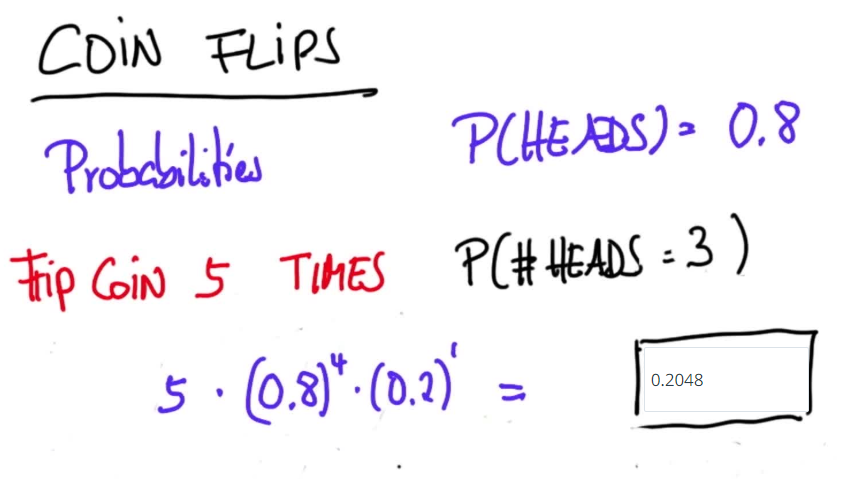 COIN FLIPS
Probabilities
P(HEADS) = 0.8
Flip COIN 5 TIMES
P(# HEADS = 3)
5 · (0.8)⁴ · (0.2)¹ =
0.2048